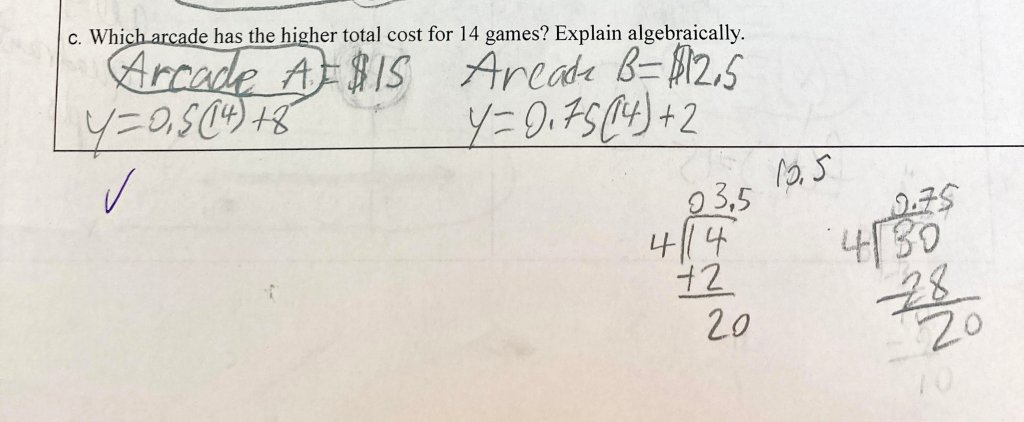 c. Which arcade has the higher total cost for 14 games? Explain algebraically.
Arcade A = $15 Arcade B = $12,5
y = 0,5(14) + 8 y = 0.75(14) + 2
✓
10.5
03,5 0.75
4 14 4 30
12 28
20 20
10